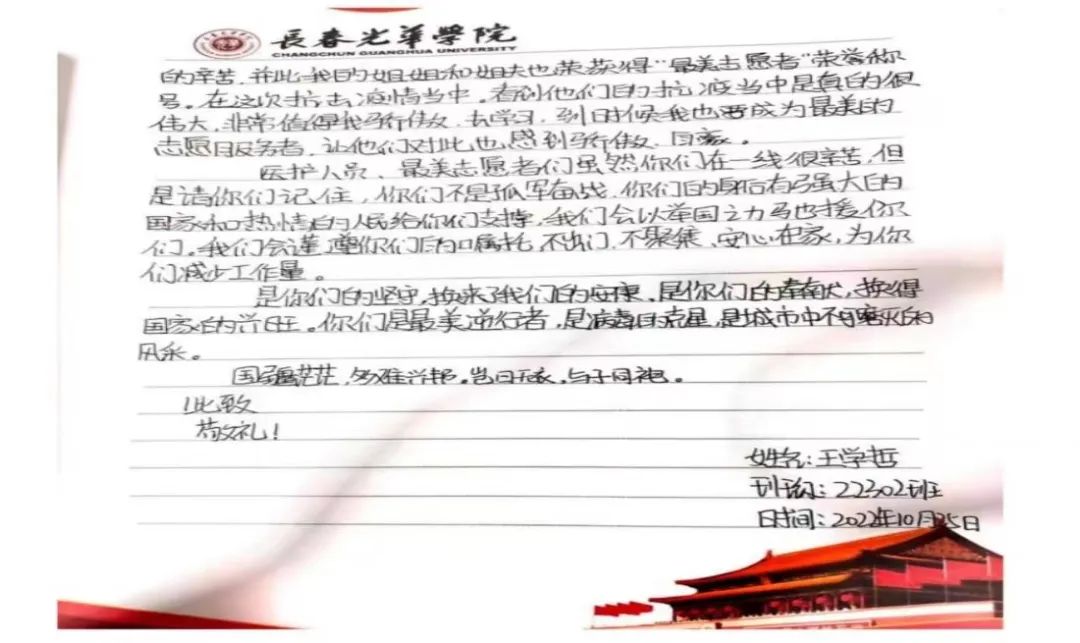 長春光華學院
CHANGCHUN GUANGHUA UNIVERSITY
的辛苦,并此我的姐姐和姐夫也荣获得“最美志愿者”荣誉称
号。在这次抗击疫情当中,看到他们的抗疫当中是真的很
伟大,非常值得我骄傲、去学习,到时候我也要成为最美的
志愿服务者,让他们对此也感到骄傲、自豪。
医护人员、最美志愿者们虽然你们在一线很辛苦,但
是请你们记住,你们不是孤军奋战,你们的身后有强大的
国家和热情的人民给你们支撑,我们会以举国之力驰援你
们。我们会谨遵你们的嘱托,不出门、不聚集、安心在家,为你
们减少工作量。
是你们的坚守,换来了我们的安康,是你们的奉献,换得
国家的兴旺。你们是最美逆行者,是病毒的克星,是城市中不可磨灭的
风采。
国疆茫茫,多难兴邦。岂曰无衣,与子同袍。
此致
敬礼!
姓名:王学哲
班级:22302班
时间:2022年10月25日